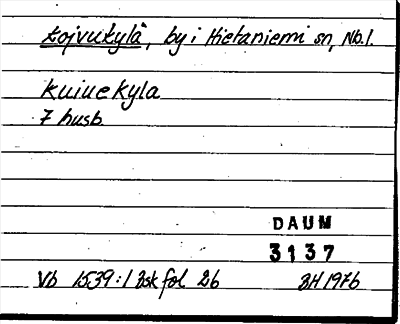 Koivukylä, by i Hietaniemi sn, Nb.l.
Kuiuekyla
7 husb.
DAUM
3137
Vb 1539:1 Bsk fol 26
BH 1976